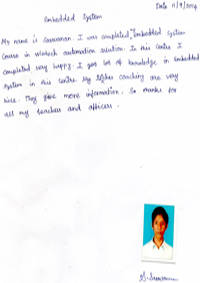 Date 11/9/2014
Embedded System
My name is Saravanan. I was completed Embedded System
Course in wintech automation solution. In this centre I
completed very happy. I got lot of knowledge in Embedded
System in this centre. My higher coaching are very
nice. They give more information. So thanks for
all my teachers and officers.